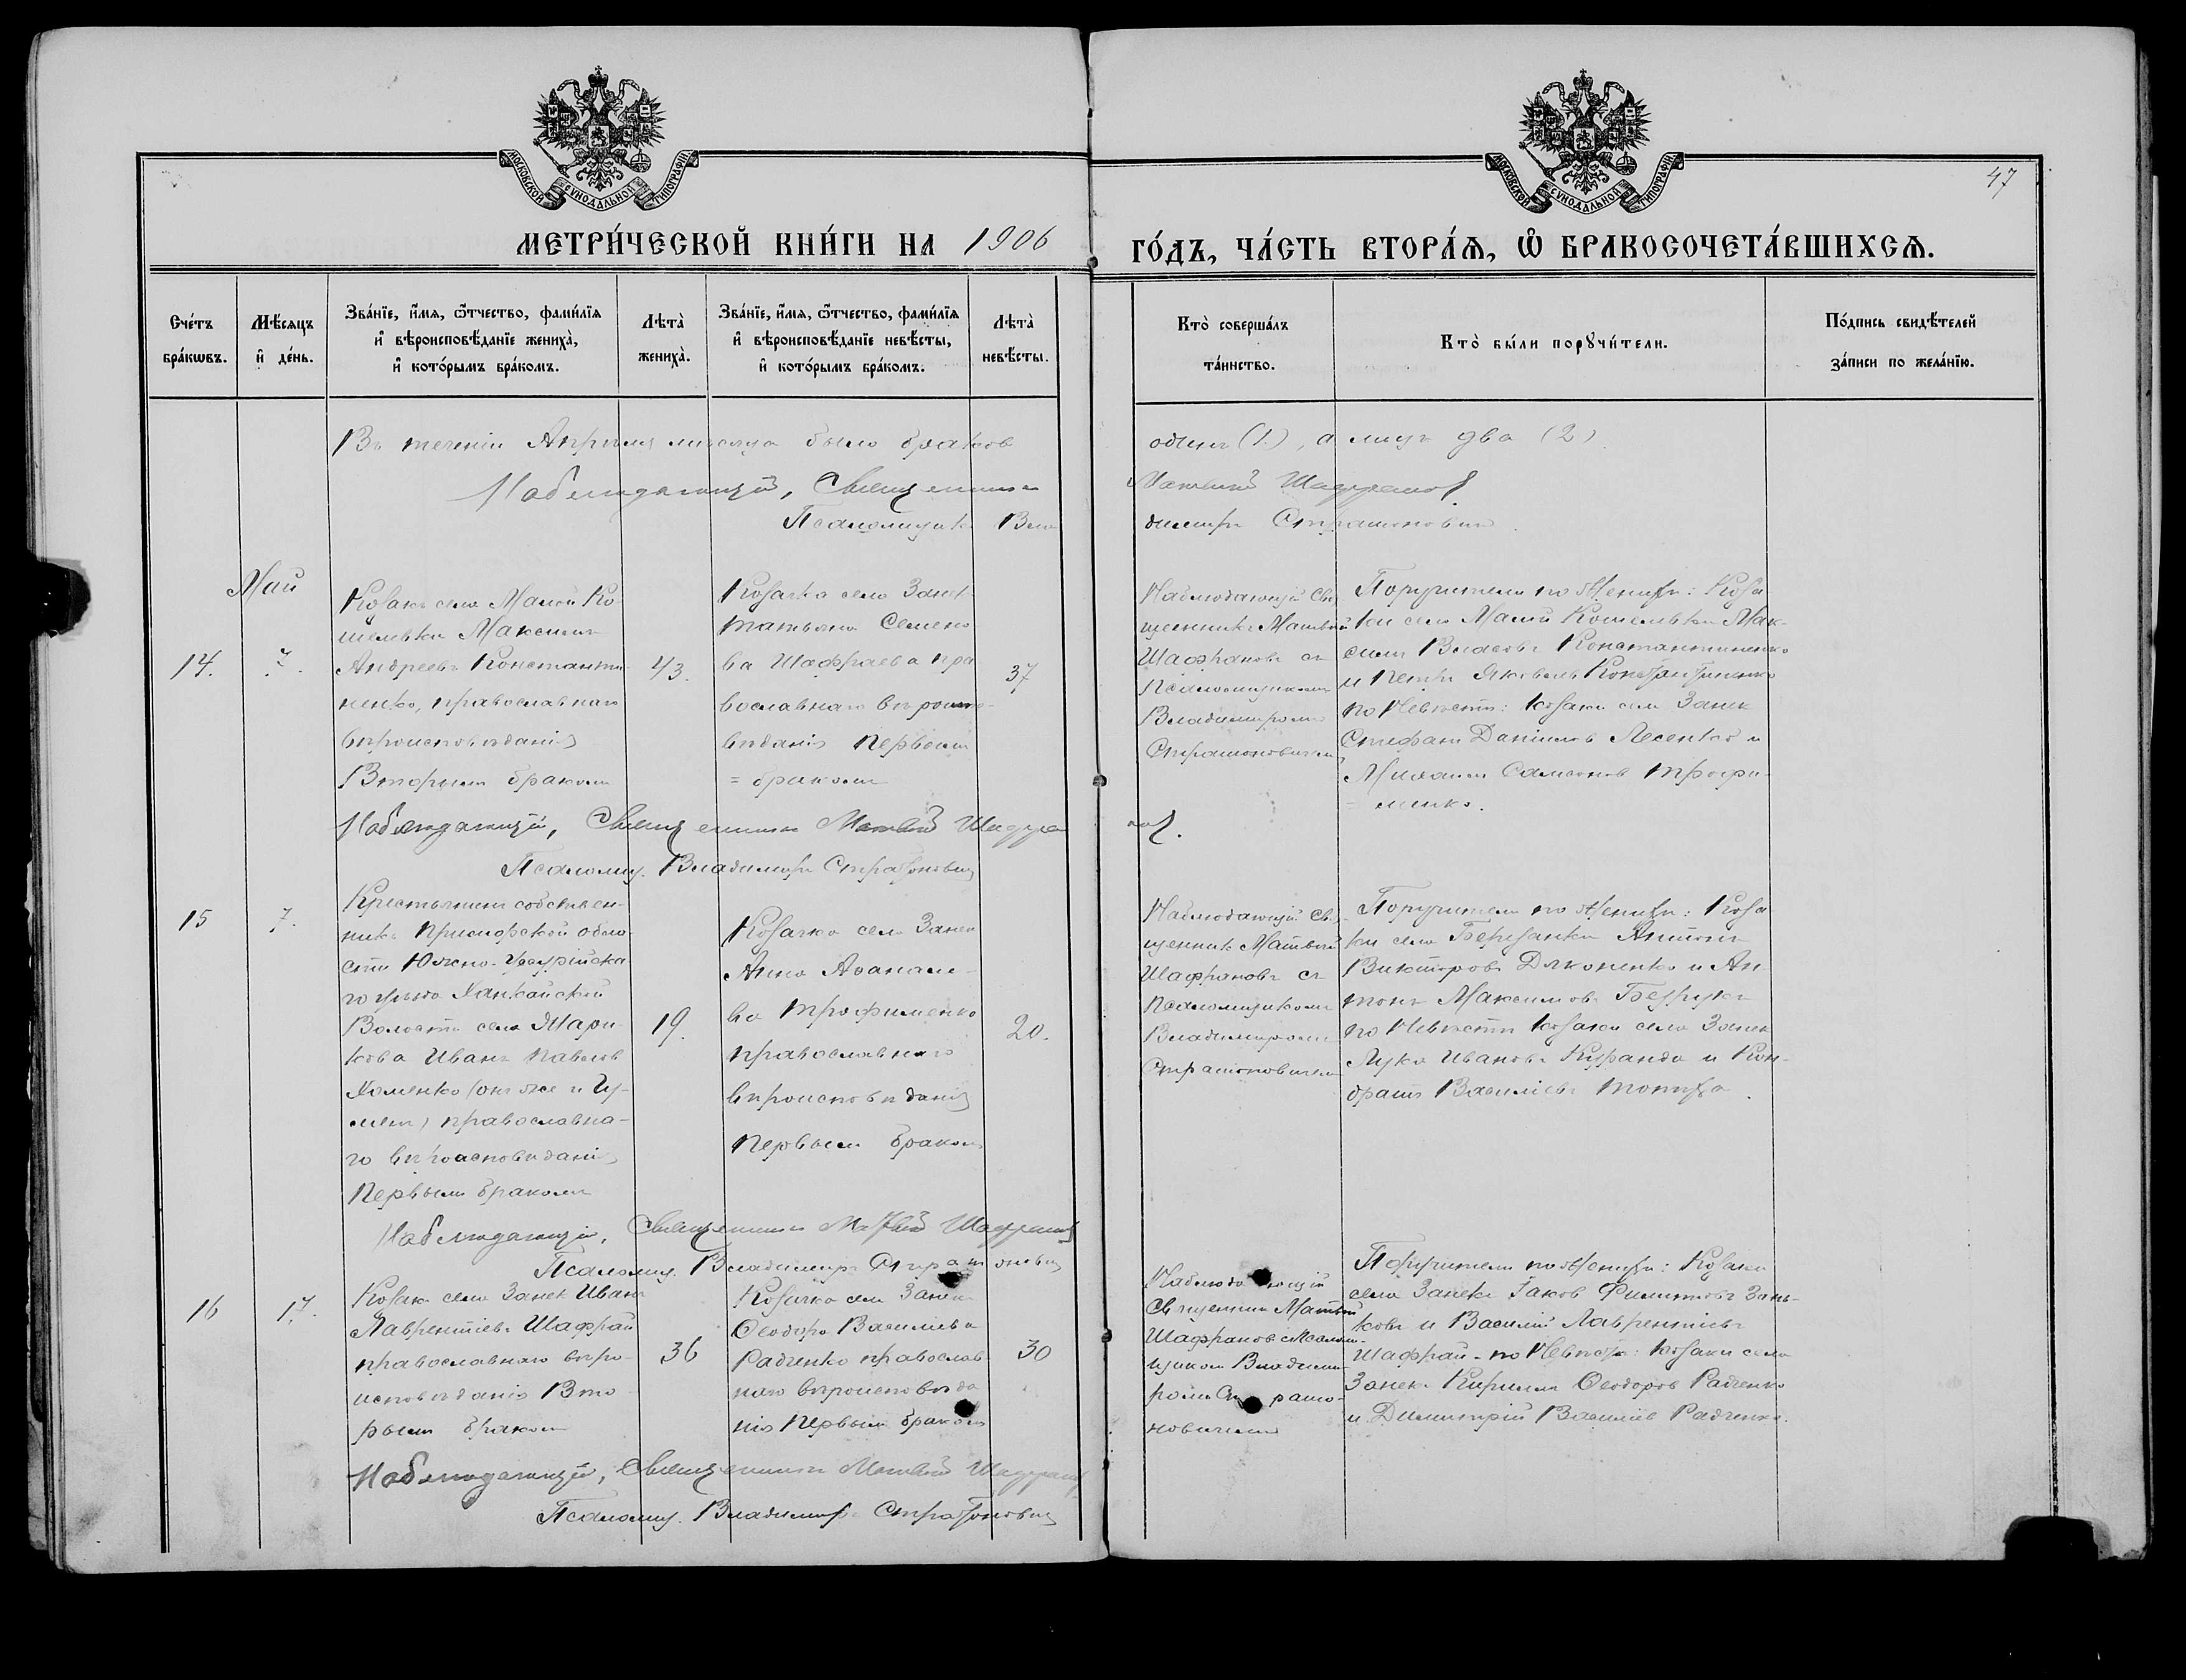 МОСКОВСКОЙ СѴНОДАЛЬНОЙ ТИПОГРАФІИ
МОСКОВСКОЙ СѴНОДАЛЬНОЙ ТИПОГРАФІИ
47
МЕТРИ́ЧЕСКОЙ КНИ́ГИ НА 1906
ГО́ДЪ, ЧА́СТЬ ВТОРА́Ѧ, Ѽ БРАКОСОЧЕТА́ВШИХСѦ.
Сче́тъ бра́кѡвъ.
Мѣ́сяцъ и҆ де́нь.
Зва́нїе, и҆́мѧ, ѻ҆́тчество, фами́лїѧ и҆ вѣроисповѣ́данїе жениха̀, и҆ кото́рымъ бра́комъ.
Лѣта̀ жениха̀.
Зва́нїе, и҆́мѧ, ѻ҆́тчество, фами́лїѧ и҆ вѣроисповѣ́данїе невѣ́сты, и҆ кото́рымъ бра́комъ.
Лѣта̀ невѣ́сты.
Кто̀ соверша́лъ та́инство.
Кто̀ бы́ли порꙋчи́тели.
По́дпись свидѣ́телей за́писи по жела́нїю.
Въ теченіи Апрѣля мѣсяца было браков
одинъ (1), а лицъ два (2)
Наблюдающій, Священникъ
Матвій Шафранов.
Псаломщикъ Вла
димиръ Стратонович.
Май
14.
7.
Козакъ села Малой Ко
шелевки Максимъ
Андреевъ Константи
ненко, православнаго
вѣроисповѣданія
Вторымъ бракомъ
43.
Козачка села Занек
татьяна Семено
ва Шафраева пра
вославнаго вѣроиспо-
вѣданія первымъ
= бракомъ
37
Наблюдающій Свя
щенникъ Матвѣй
Шафрановъ съ
псаломщикомъ
Владимиромъ
Стратоновичемъ
Поручители по жениху: Коза
ки села Малой Кошелевки Мак-
симъ Власовъ Константиненко
и Петръ Яковлевъ Константиненко
по невѣсте: козаки села Занек
Стефанъ Даніиловъ Лесенко и
Михаилъ Самсонов трофи-
= менко.
Наблюдающій, Священникъ Матвій Шафра
нов.
Псаломщ. Владимиръ Стратонович
15
7.
Крестьянинъ собствен-
никъ Приморской обла-
сти Южно-Уссурійска
го уѣзда Ханкайской
Волости села Мари
кова Иванъ Павлов
Хоменко (онъ же и Гу-
мен) православна-
го вѣроисповѣданія
Первымъ бракомъ
19.
Козачка села Занек
Анна Аѳанасе-
ва трофименко
православнаго
вѣроисповѣданія
первымъ бракомъ
20.
Наблюдающій Св-
щенникъ Матвѣй
Шафрановъ съ
псаломщикомъ
Владимиромъ
Стратоновичем
Поручители по жениху: Коза
ки села Березанки Антонъ
Викторовъ Дяконенко и Ан
тонъ Максимовъ
по невѣсти козаки села Занек
Лука Ивановъ и Кон-
дратъ Василіевъ
Наблюдающій, Священникъ Матвій Шафранов
Псаломщ. Владимиръ Стратонович
16
17.
Козакъ села Занек Иванъ
Лаврентіевъ Шафрай
православнаго вѣро-
исповѣданія Вто
рымъ бракомъ
36
Козачка села Занек
Ѳеодора Василіева
Радченко православ
наго вѣроисповѣда
нія первымъ бракомъ
30
Наблюдающій
Священникъ Матвѣй
Шафрановъ съ псалом-
щиком Владими-
ромъ Страто-
новичемъ
Поручители по жениху: Козаки
села Занекъ Іаковъ Филипповъ Зань-
ковъ и Василій Лаврентіевъ
Шафрай - по невѣсте: козаки села
Занекъ Кириллъ Ѳеодоров Радченко
и Димитрій Василіев Радченко.
Наблюдающій, Священникъ Матвій Шафранов
Псаломщ. Владимиръ Стратонович